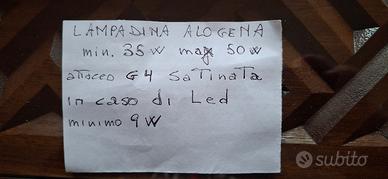 LAMPADINA ALOGENA
min. 35 W max 50 W
attacco G4 SaTinaTa
in caso di Led
minimo 9 W
subito